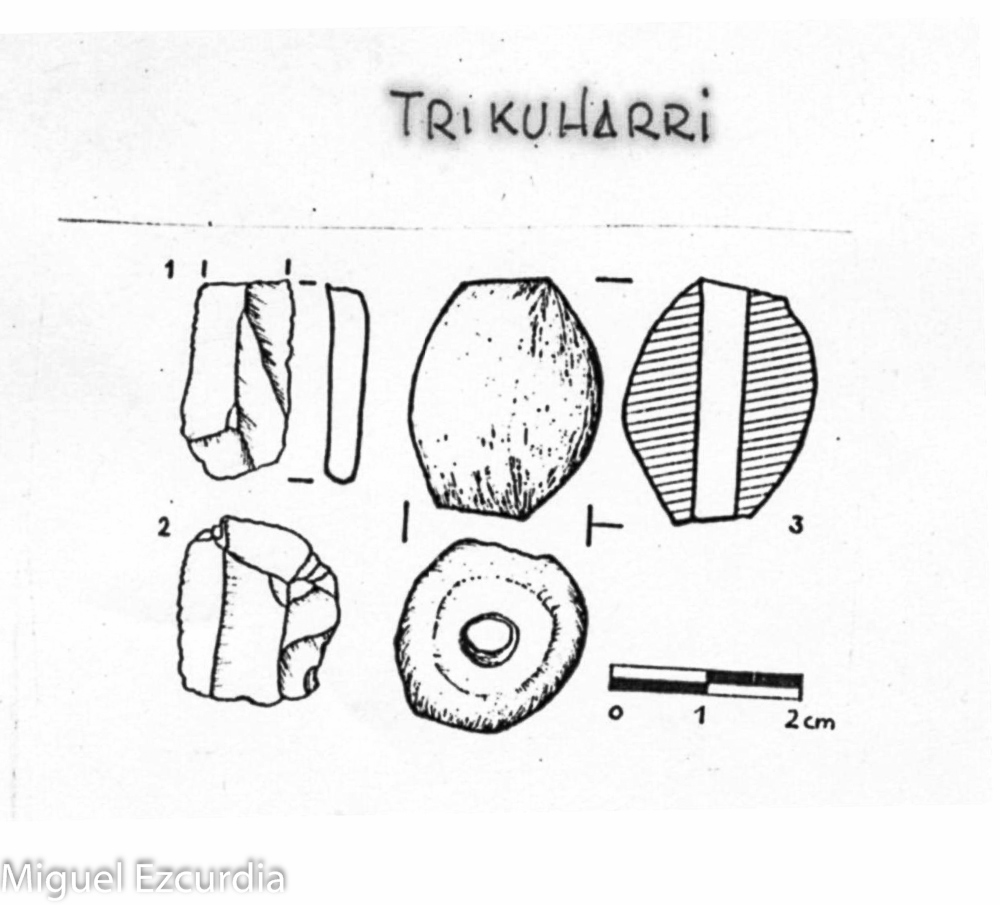 TRIKUHARRI
1
2
3
0 1 2cm
Miguel Ezcurdia